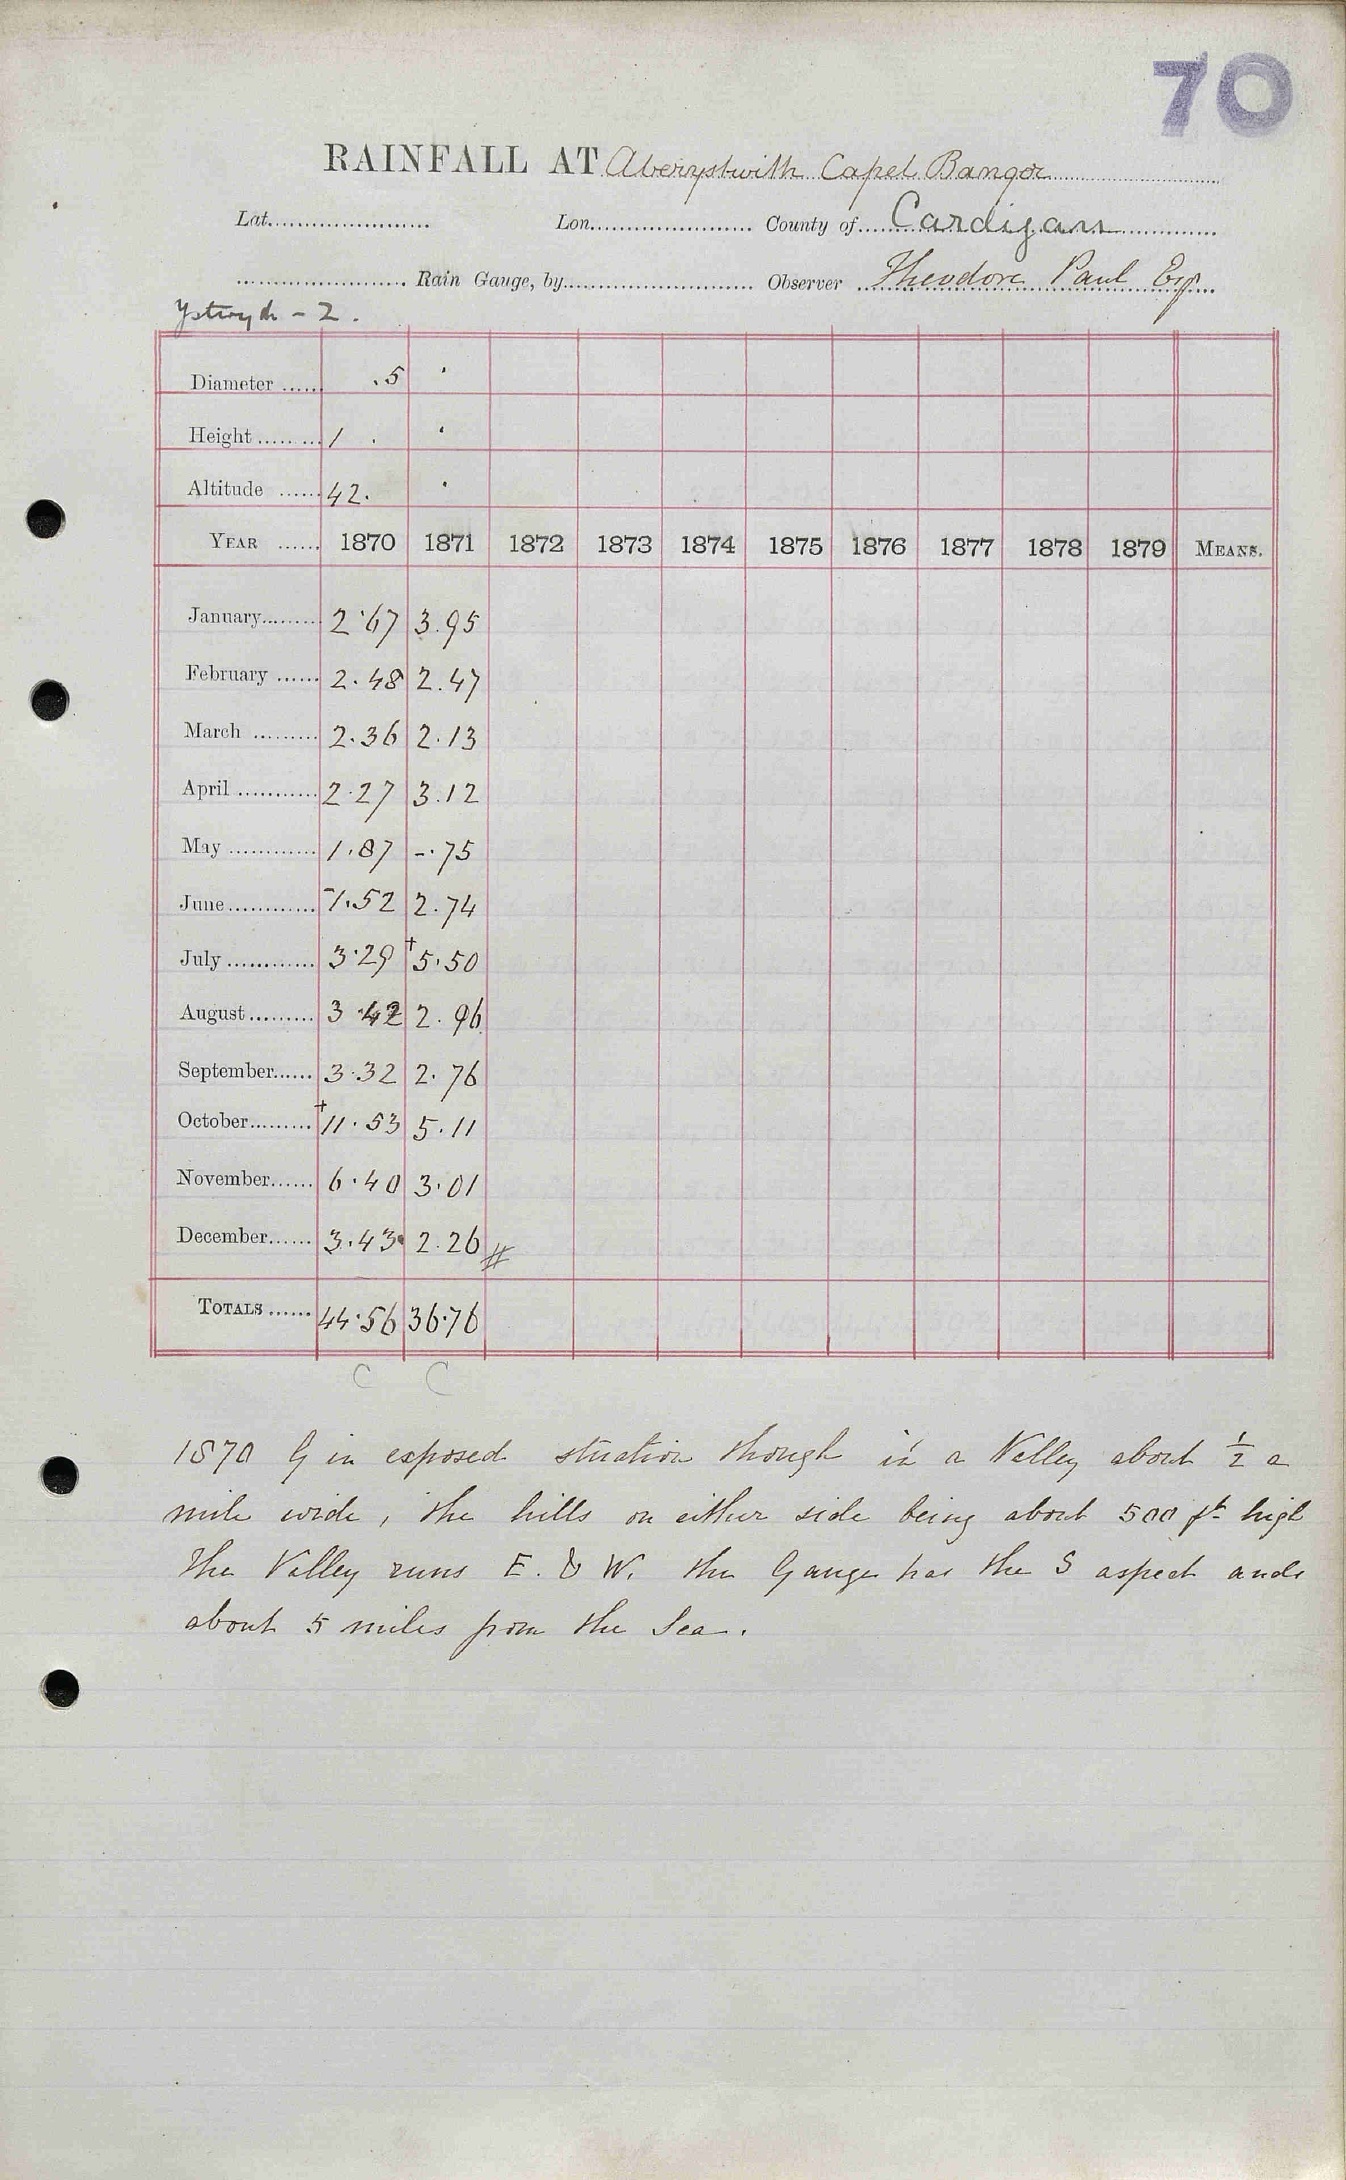 70
RAINFALL AT Aberystwith Capel Bangor
Lat. Lon. County of Cardigan
Rain Gauge, by Observer Theodore Paul Esq
Ystwyth - 2.
Diameter ...... .5 '
Height ...... 1 . '
Altitude ...... 42. '
YEAR ...... 1870 1871 1872 1873 1874 1875 1876 1877 1878 1879 MEANS.
January 2.67 3.95
February 2.48 2.47
March 2.36 2.13
April 2.27 3.12
May 1.87 -.75
June -1.52 2.74
July 3.29 +5.50
August 3.42 2.96
September 3.32 2.76
October +11.53 5.11
November 6.40 3.01
December 3.43 2.26 #
TOTALS 44.56 36.76
C C
1870 G in exposed situation though in a Valley about ½ a
mile wide, the hills on either side being about 500 ft high
the Valley runs E. & W. the Gauge has the S aspect and
about 5 miles from the Sea.